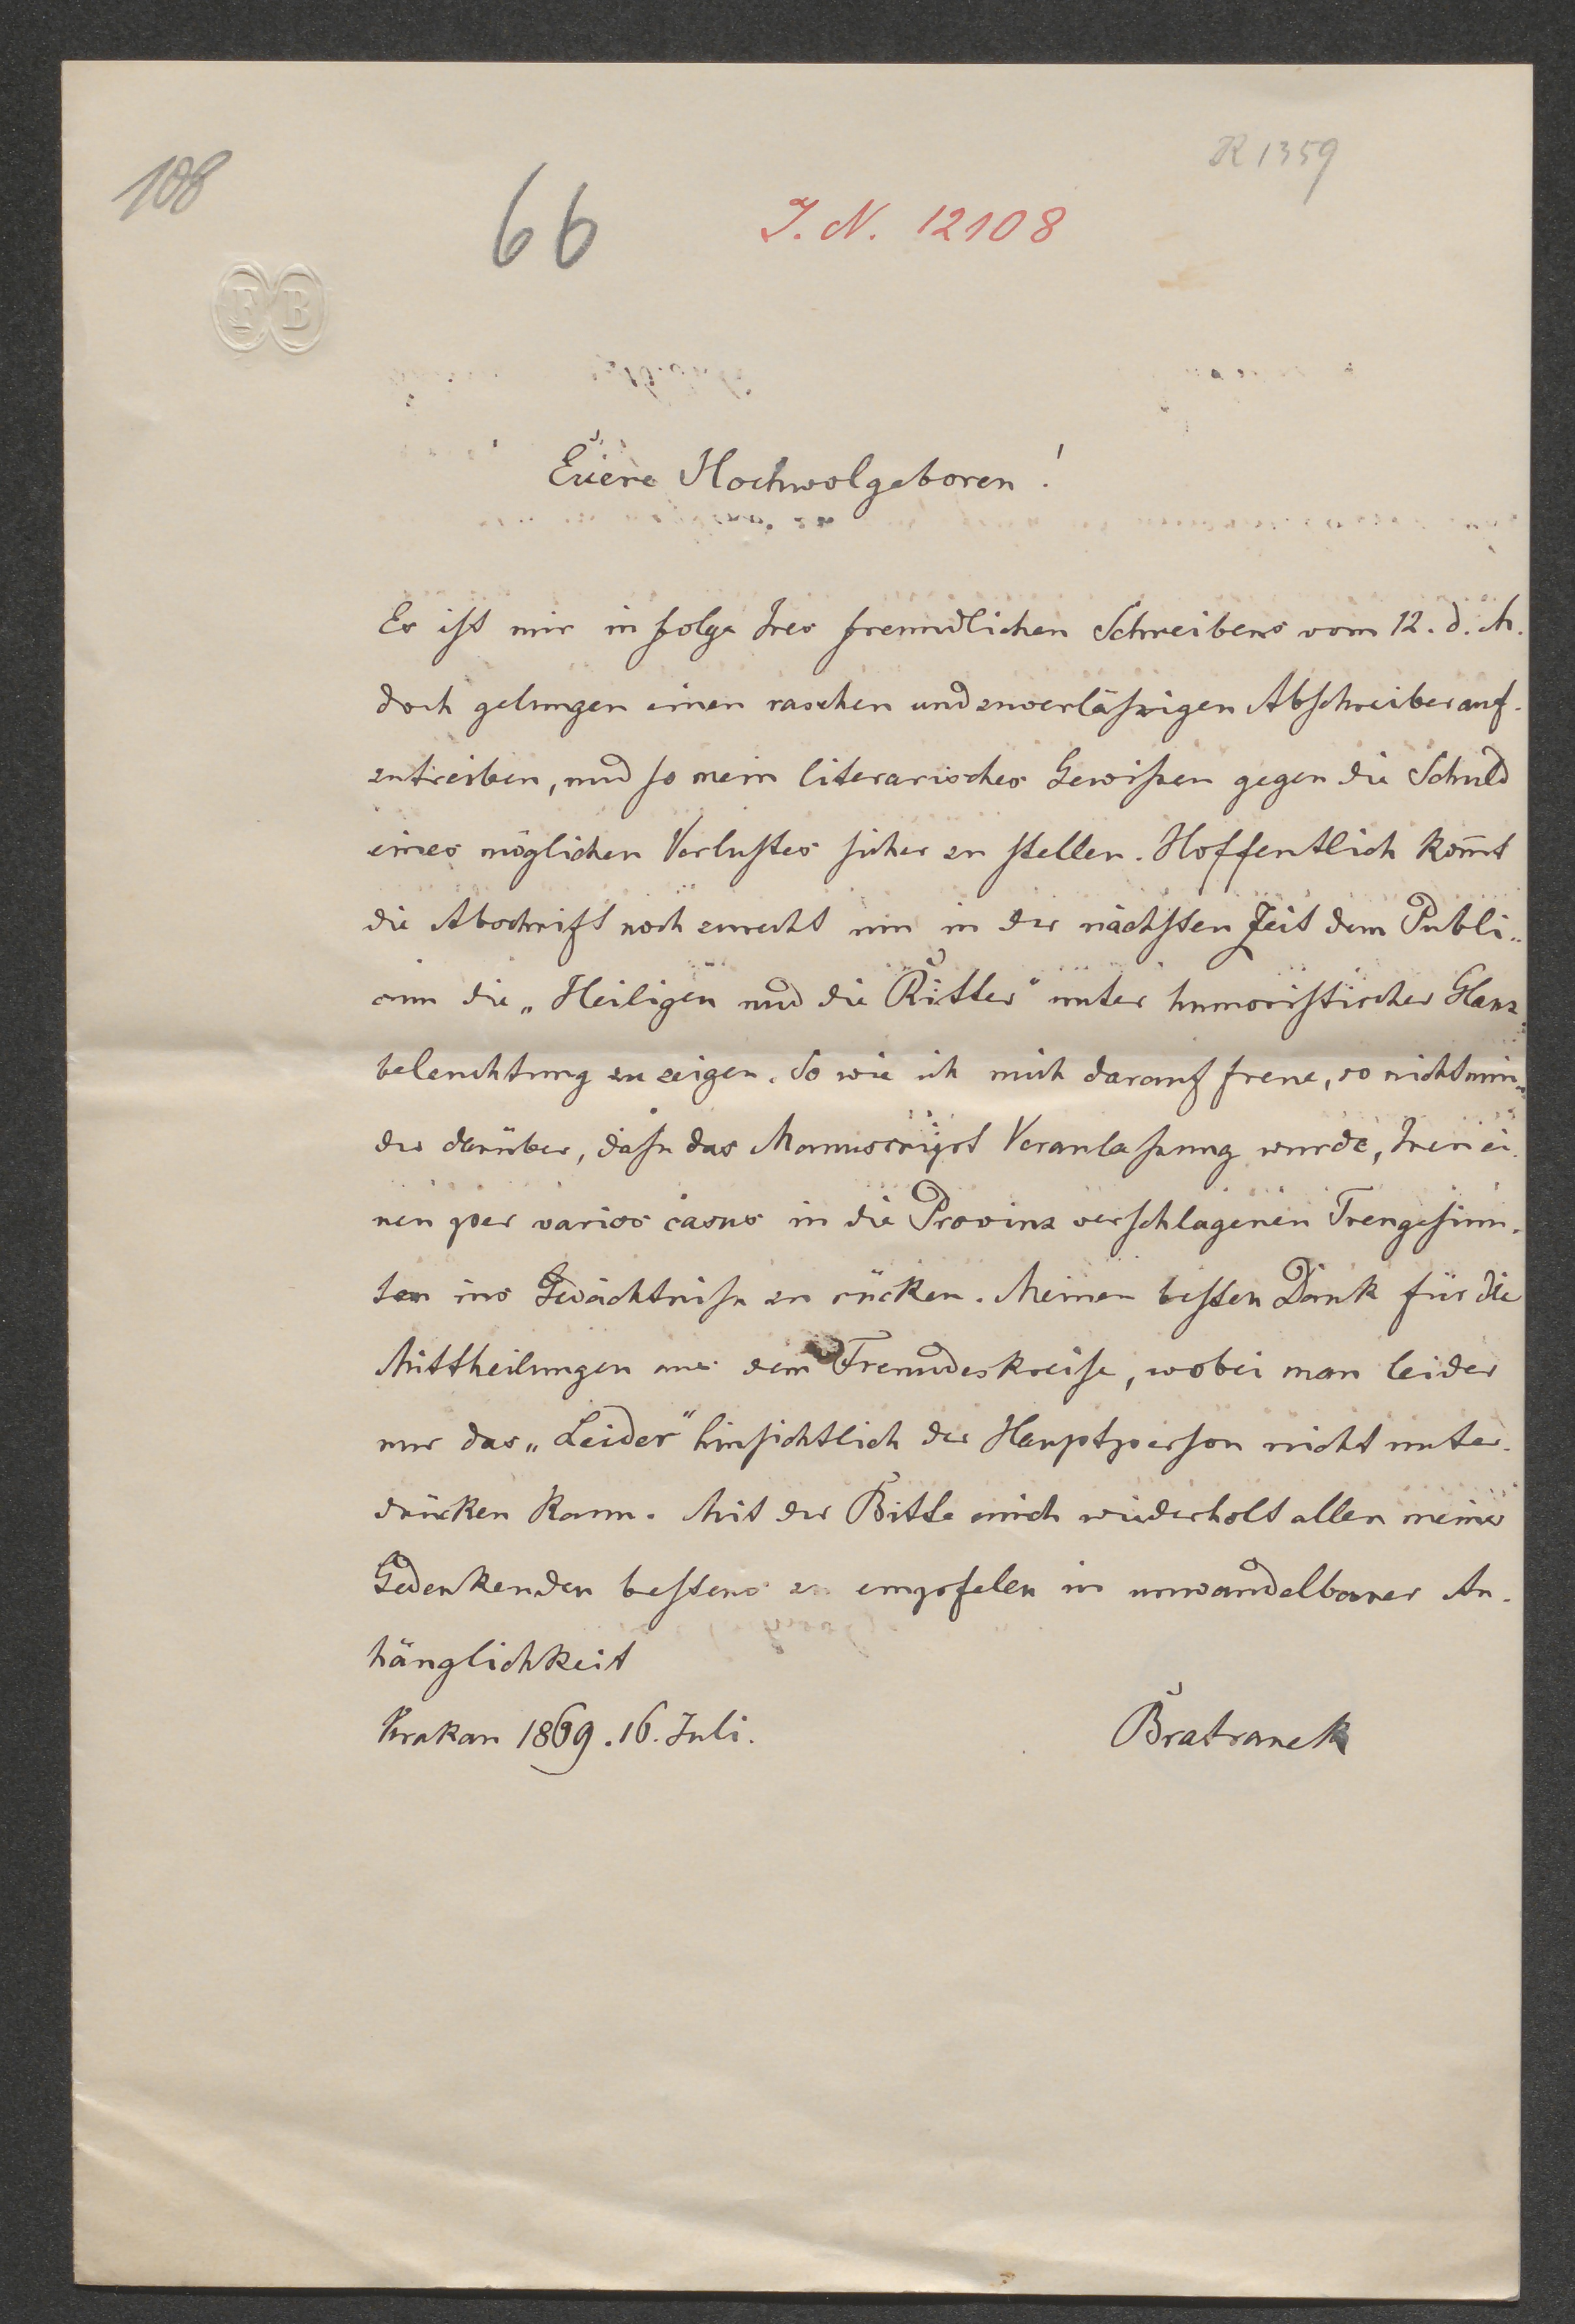 108
66
J. N. 12108
R 1359
F B
Euere Hochwolgeboren!
Es ist mir in folge Ires freundlichen Schreibens vom 12. d. M.
doch gelungen einen raschen und zuverläſsigen Abschreiber auf-
zutreiben, und so mein literarisches Gewiſsen gegen die Schuld
eines möglichen Verlustes sicher zu stellen. Hoffentlich kom̄t
die Abschrift noch zurecht um in der nächsten Zeit dem Publi-
cum die „Heiligen und die Ritter“ unter humoristischer Glanz-
beleuchtung zu zeigen. So wie ich mich darauf freue, so nicht min-
der darüber, daſs das Manuscript Veranlaſsung wurde, Inen ei-
nen per varios casus in die Provinz verschlagenen Treugesinn-
ten ins Gedächtniſs zu rücken. Meinen besten Dank für die
Mittheilungen aus dem Freundeskreise, wobei man leider
nur das „Leider“ hinsichtlich der Hauptperson nicht unter-
drücken kann. Mit der Bitte mich wiederholt allen meiner
Gedenkenden bestens zu empfelen in unwandelbarer An-
hänglichkeit
Krakau 1869. 16. Juli.
Bratranek